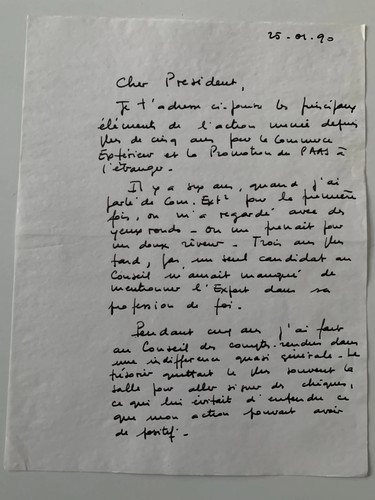 25-01.90
Cher President,
Je t'adresse ci-joints les principaux
éléments de l'action menée depuis
plus de cinq ans pour le Commerce
Extérieur et la Promotion du PAAS à
l'étranger.
Il y a six ans, quand j'ai
parlé de Com. Ext² pour la première
fois, on m'a regardé avec des
yeux ronds - On me prenait pour
un doux rêveur - Trois ans plus
tard, pas un seul candidat au
Conseil n'aurait manqué de
mentionner l'Export dans sa
profession de foi.
Pendant cinq ans j'ai fait
au Conseil des comptes-rendus dans
une indifférence quasi générale - Le
trésorier quittant le plus souvent la
salle pour aller signer des chèques,
ce qui lui évitait d'entendre ce
que mon action pouvait avoir
de positif -